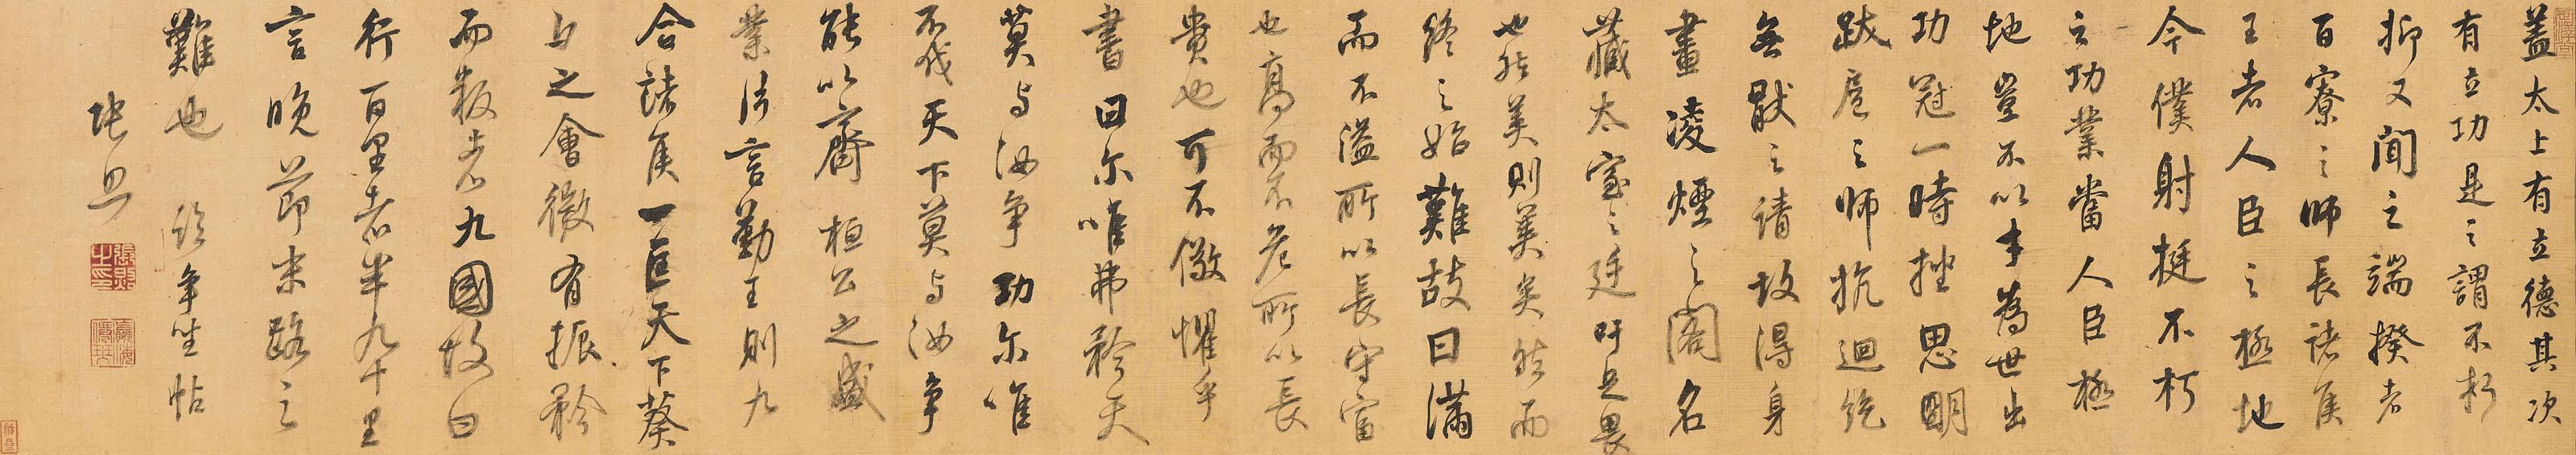 蓋太上有立德其次
有立功是之謂不朽
抑又聞之端揆者
百寮之師長諸侯
王者人臣之極地
今僕射挺不朽
之功業當人臣極
地豈不以才為世出
功冠一時挫思明
跋扈之師抗迴紇
無厭之請故得身
畫凌煙之閣名
藏太室之廷吁足畏
也然美則美矣然而
終之始難故曰滿
而不溢所以長守富
也高而不危所以長
貴也可不儆懼乎
書曰爾唯弗矜天
莫与汝爭功爾唯
不伐天下莫与汝爭
能以齊桓公之盛
業片言勤王則九
合諸侯一匡天下葵
丘之會微有振矜
而叛者九國故曰
行百里者半九十里
言晚節末路之
難也 臨爭坐帖
張照
張照之印
瀛海僊琴